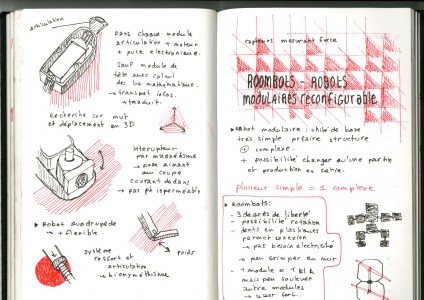 articulation
Dans chaque module
articulation + moteur
+ puce électronique.
Sauf module de
tête avec calcul
mathématique.
→ transport infos.
→ traduit.
Recherche sur mvt
et déplacement en 3D
interupteur
par magnétisme
→ pose aimant
ou coupe
courant dans
→ pas pb imperméable
Robot quadrupède
→ flexible.
système
ressort et
articulation
→ biomymétisme
poids
capteurs mesurant force
ROOMBOTS - ROBOTS
MODULAIRES RECONFIGURABLE
Robot modulaire : unité de base
très simple pr faire structure
+ complexe.
+ possibilité changer qu'une partie
et production en série.
plusieur simple = 1 complexe
Roombots:
- 3 degrés de liberté
- possibilité rotation
- dents en plastiques
permet connexion
→ pas besoin électricité
→ peu grimper au mur
- 1 module =
mais peu soulever
autre modules
→ assez fort.